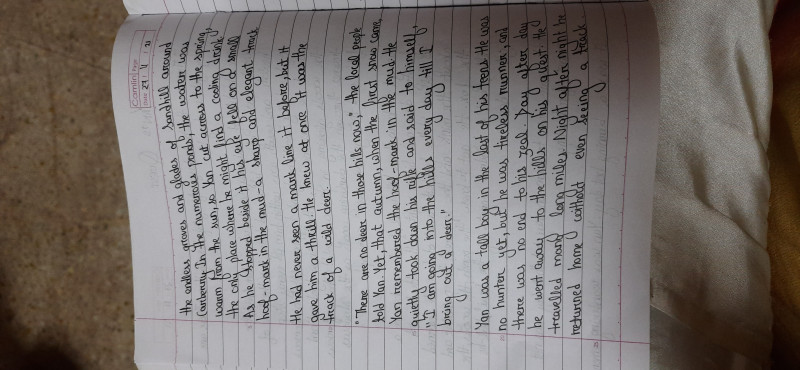 Camlin Page
Date 27 / 4 / 21
the endless groves and glades of Sandhill around
Carberry In the numerous ponds, the water was
warm from the sun, so Yan cut across to the spring,
the only place where he might find a cooling drink,
As he stopped beside it his eye fell on a small
hoof-mark in the mud-a sharp and elegant track
He had never seen a mark line it before, but it
gave him a thrill. He knew at once it was the
track of a wild deer.
"There are no deer in those hills now," the local people
told Yan. Yet, that autumn, when the first snow came,
Yan remembered the hoof-mark in the mud. He
quietly took down his rifle and said to himself,
"I am going into the hills every day till I
bring out a deer."
Yan was a tall boy in the last of his teens. He was
no hunter yet, but he was tireless runner, and
there was no end to his zeal. Day after day
he went away to the hills on his quest. He
travelled many long miles. Night after night he
returned home without even seeing a track.